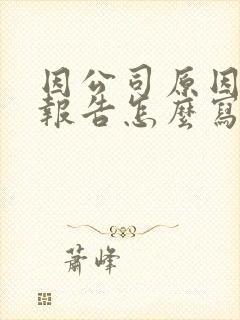 因公司原因
報告怎麼寫
蕭峰